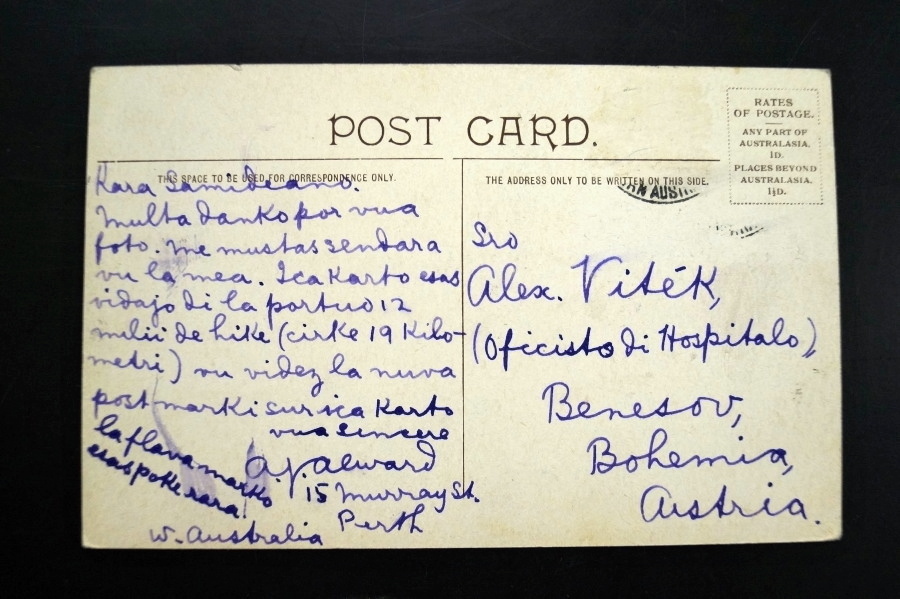 POST CARD.
RATES
OF POSTAGE.
ANY PART OF
AUSTRALASIA,
1D.
PLACES BEYOND
AUSTRALASIA,
1½D.
THIS SPACE TO BE USED FOR CORRESPONDENCE ONLY.
THE ADDRESS ONLY TO BE WRITTEN ON THIS SIDE.
Kara Samideano.
Multa danko por vua
foto. me mustas sendar a
vu la mea. Ica Karto esas
vidajo di la portuo 12
milii de hike (cirke 19 Kilo-
metri) vu videz la nuva
postmarki sur ica Karto
vua sincere
A.J. Alward
15 Murray St.
Perth
W. Australia
la flava marko
esas poke rara!
Sro
Alex. Viték,
(Oficisto di Hospitalo)
Benesov,
Bohemia,
Austria.